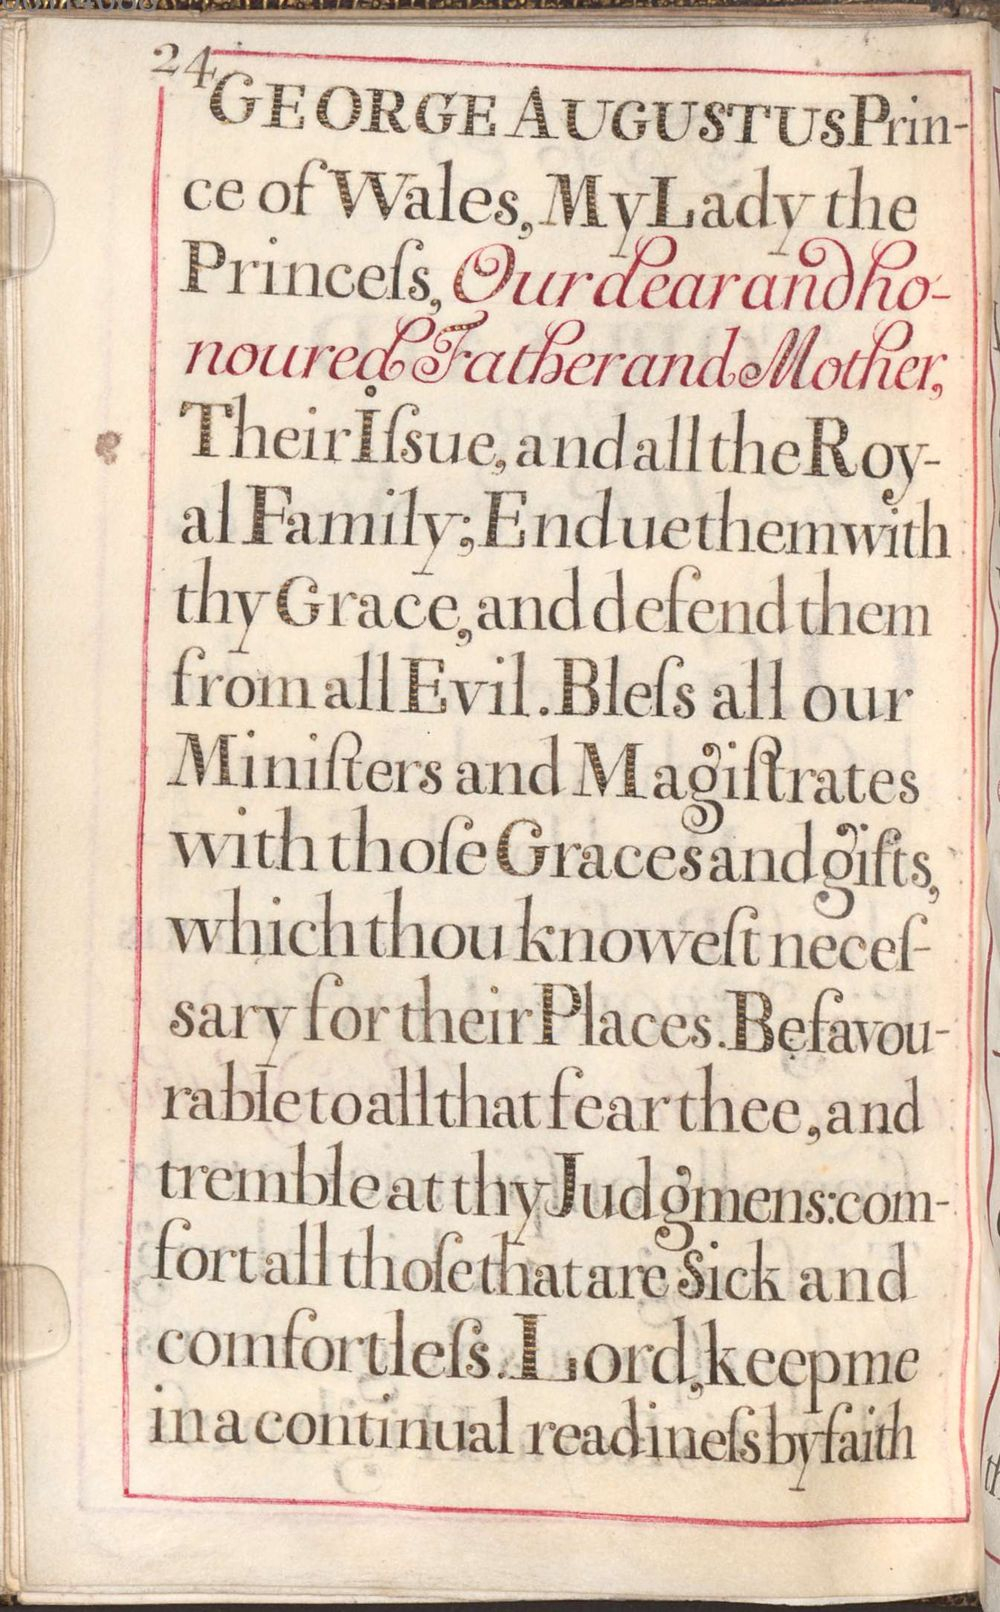 24
GEORGE AUGUSTUS Prin-
ce of Wales, My Lady the
Princeſs, Our dear and ho-
noured Father and Mother,
Their Iſsue, and all the Roy-
al Family; Endue them with
thy Grace, and defend them
from all Evil. Bleſs all our
Miniſters and Magiſtrates
with thoſe Graces and gifts,
which thou knoweſt neceſ-
sary for their Places. Be favou-
rable to all that fear thee, and
tremble at thy Judgmens: com-
fort all thoſe that are Sick and
comfortleſs. Lord, keep me
in a continual readineſs by faith